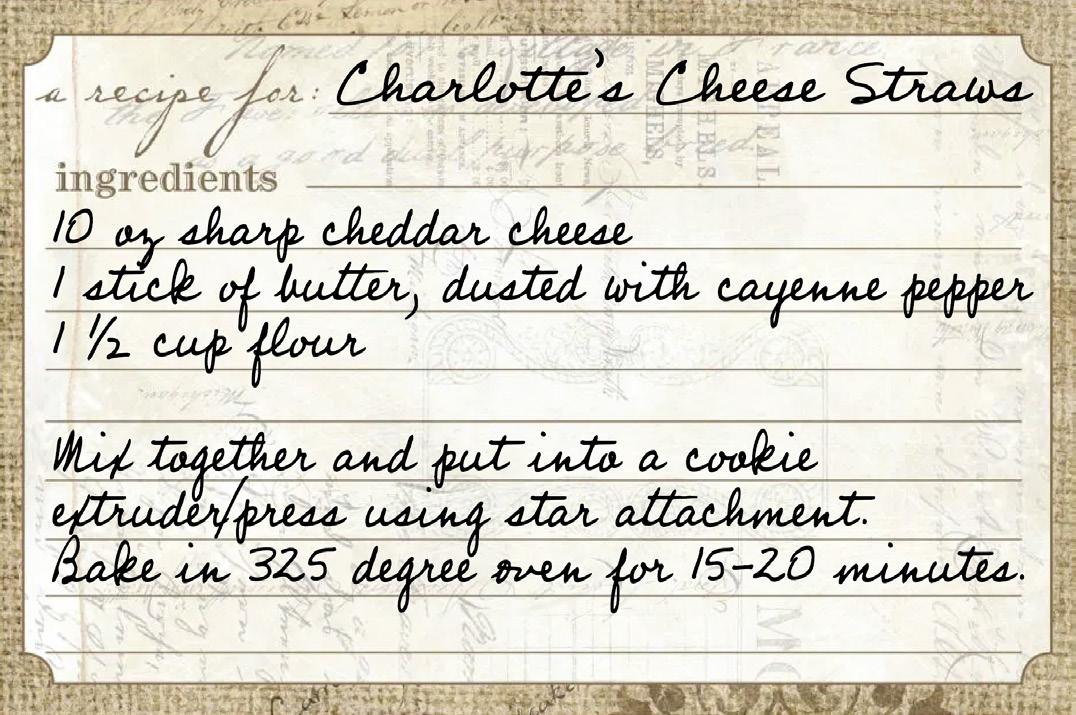 a recipe for: Charlotte's Cheese Straws
ingredients
10 oz sharp cheddar cheese
1 stick of butter, dusted with cayenne pepper
1 ½ cup flour
Mix together and put into a cookie
extruder/press using star attachment.
Bake in 325 degree oven for 15-20 minutes.